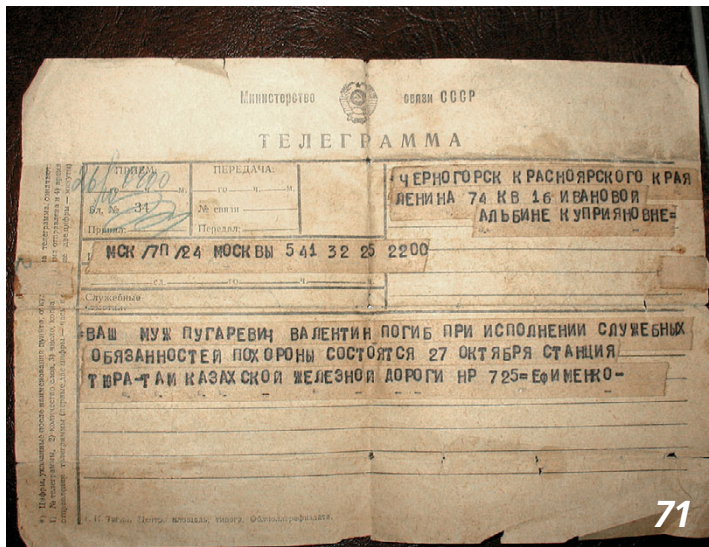 Министерство связи СССР
ТЕЛЕГРАММА
ПРИЕМ:
Бл. № 34
Принял:
ПЕРЕДАЧА:
го ч. м.
№ связи
Передал:
ЧЕРНОГОРСК КРАСНОЯРСКОГО КРАЯ
ЛЕНИНА 74 КВ 16 ИВАНОВОЙ
АЛЬБИНЕ КУПРИЯНОВНЕ=
МСК/7П/24 МОСКВЫ 541 32 25 2200
сл. го ч.
Служебные
ВАШ МУЖ ПУГАРЕВИЧ ВАЛЕНТИН ПОГИБ ПРИ ИСПОЛНЕНИИ СЛУЖЕБНЫХ
ОБЯЗАННОСТЕЙ ПОХОРОНЫ СОСТОЯТСЯ 27 ОКТЯБРЯ СТАНЦИЯ
ТЮРА-ТАМ КАЗАХСКОЙ ЖЕЛЕЗНОЙ ДОРОГИ НР 725=ЕФИМЕНКО-
71